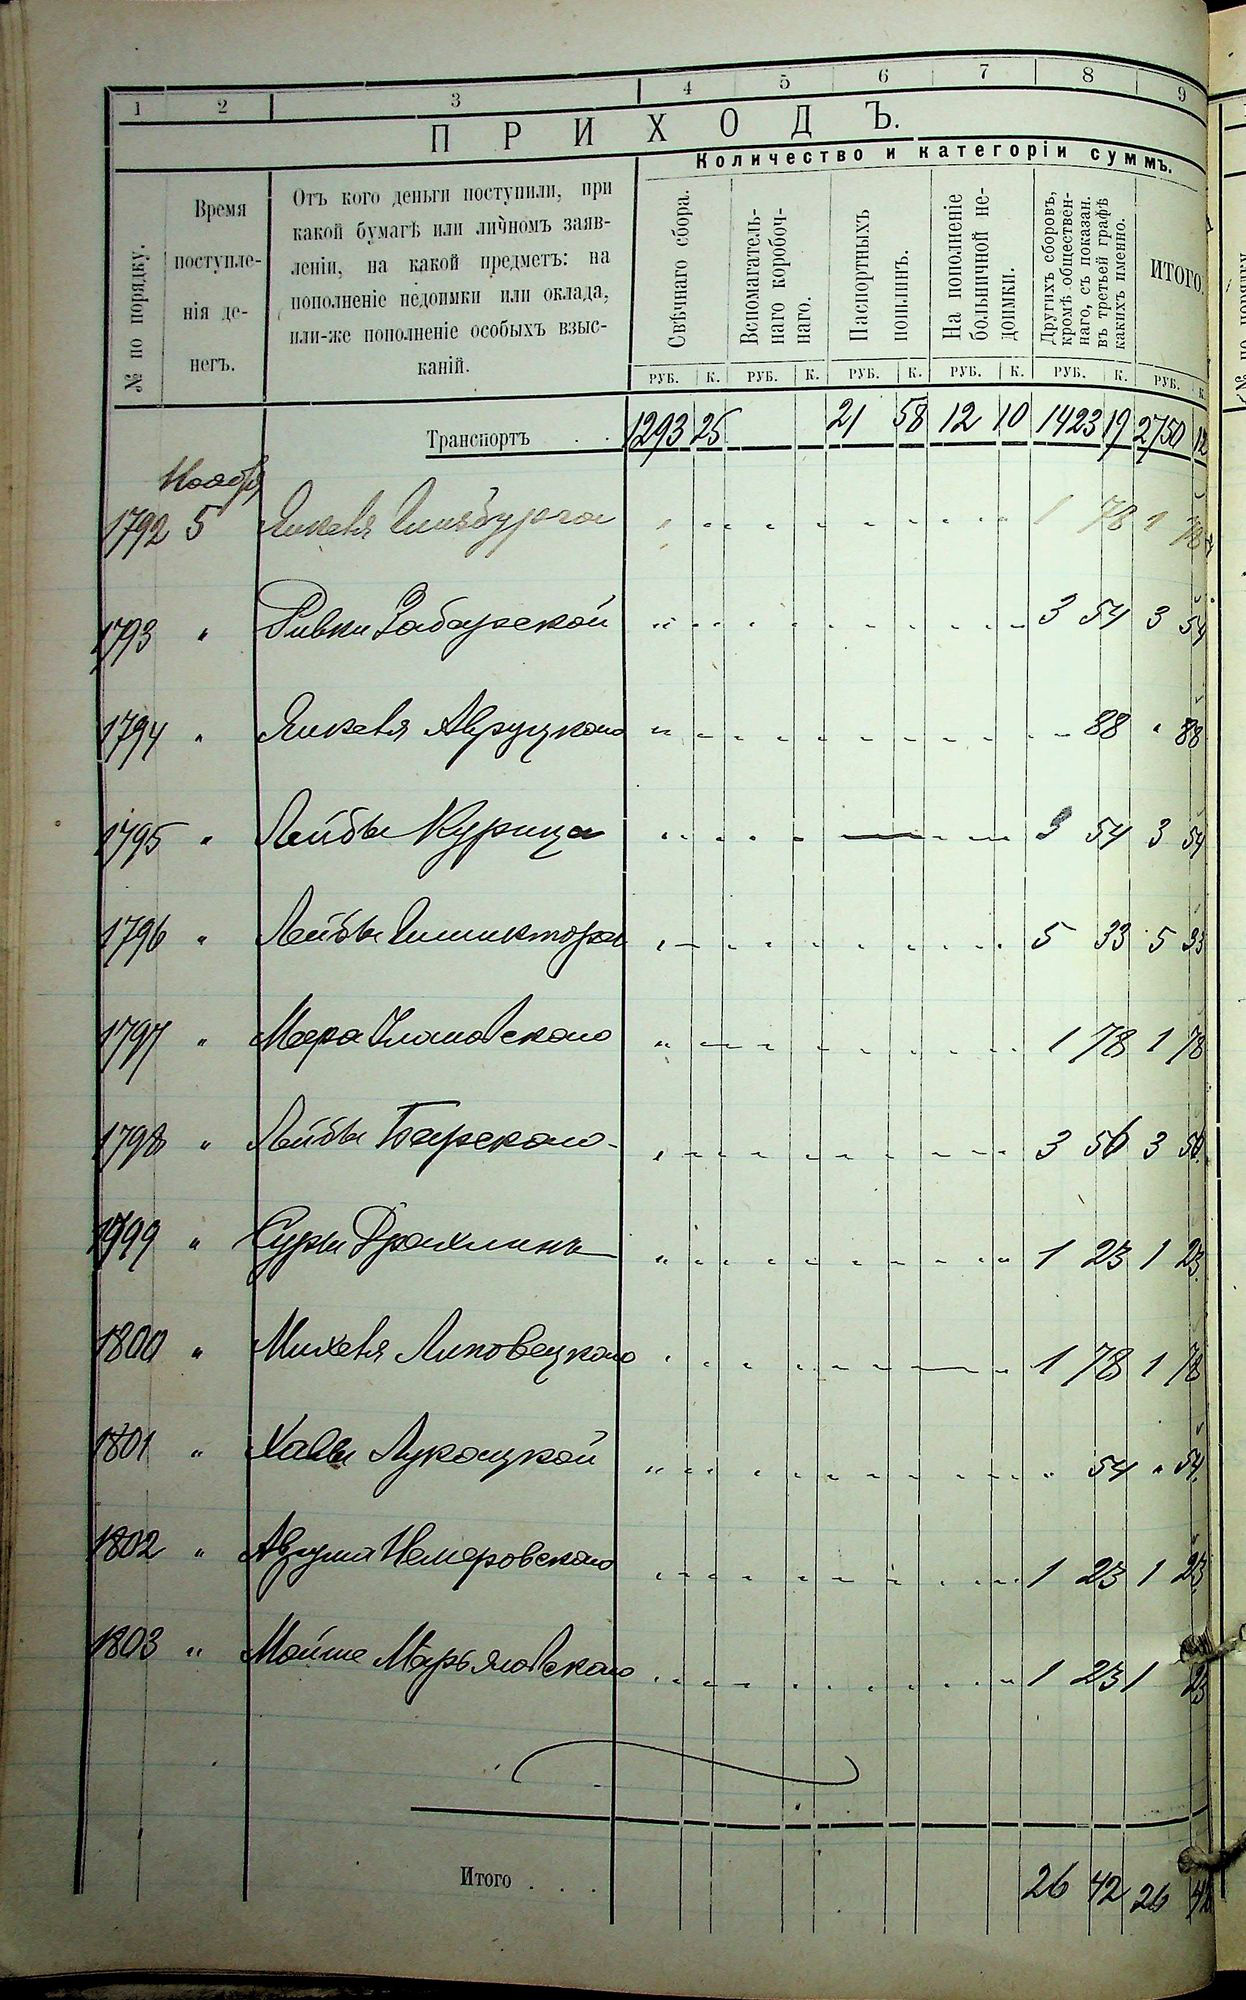 1 2 3 4 5 6 7 8 9
ПРИХОДЪ.
Количество и категоріи суммъ.
№ по порядку.
Время
поступле-
нія де-
негъ.
Отъ кого деньги поступили, при
какой бумагѣ или личномъ заяв-
леніи, на какой предметъ: на
пополненіе недоимки или оклада,
или-же пополненіе особыхъ взыс-
каній.
Свѣчнаго сбора.
Вспомагатель-
наго коробоч-
наго.
Паспортныхъ
пошлинъ.
На пополненіе
больничной не-
доимки.
Другихъ сборовъ,
кромѣ обществен-
наго, съ показан.
въ третьей графѣ
какихъ именно.
ИТОГО.
РУБ. К. РУБ. К. РУБ. К. РУБ. К. РУБ. К. РУБ. К
Транспортъ . . 1293 25 21 58 12 10 1423 19 2750 12
Ноября
1792 5 Янкеля Гинзбурга 1 78 1 78
1793 " Ривки Забарской 3 54 3 54
1794 " Янкеля Авруцкого 88 " 88
1795 " Лейбы Курица 3 54 3 54
1796 " Лейбы 5 33 5 33
1797 " Меера 1 78 1 78
1798 " Лейбы Барского 3 56 3 56
1799 " Суры 1 23 1 23
1800 " Михеля Липовецкого 1 78 1 78
1801 " Хавы Лукацкой " 54 " 54
1802 " Аврума Немеровского 1 23 1 23
1803 " Мойше Марьяновского 1 23 1 23
Итого . . . 26 42 26 42